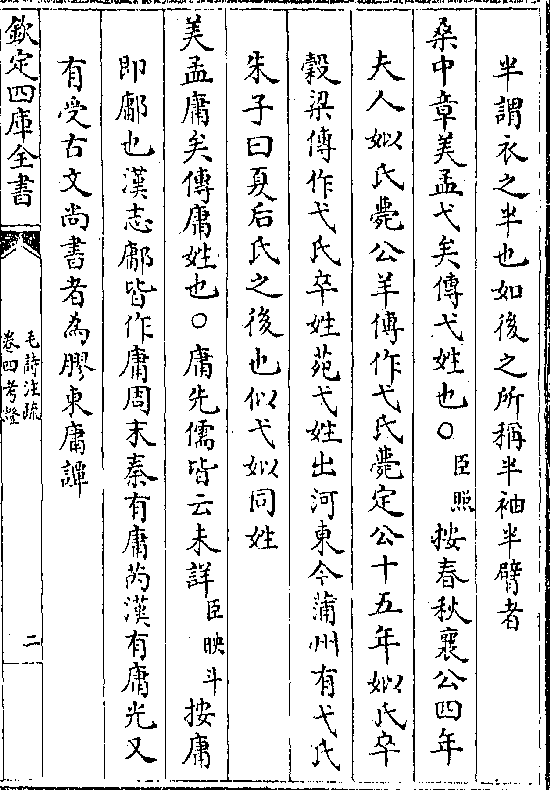 半謂衣之半也如後之所稱半袖半臂者
桑中章美孟弋矣傳弋姓也○臣照按春秋襄公四年
夫人姒氏薨公羊傳作弋氏薨定公十五年姒氏卒
穀梁傳作弋氏卒姓苑弋姓出河東今蒲州有弋氏
朱子曰夏后氏之後也似弋姒同姓
美孟庸矣傳庸姓也○庸先儒皆云未詳臣映斗按庸
即鄘也漢志鄘皆作庸周末秦有庸芮漢有庸光又
有受古文尚書者為膠東庸譚
欽定四庫全書
毛詩注疏
卷四考證
二